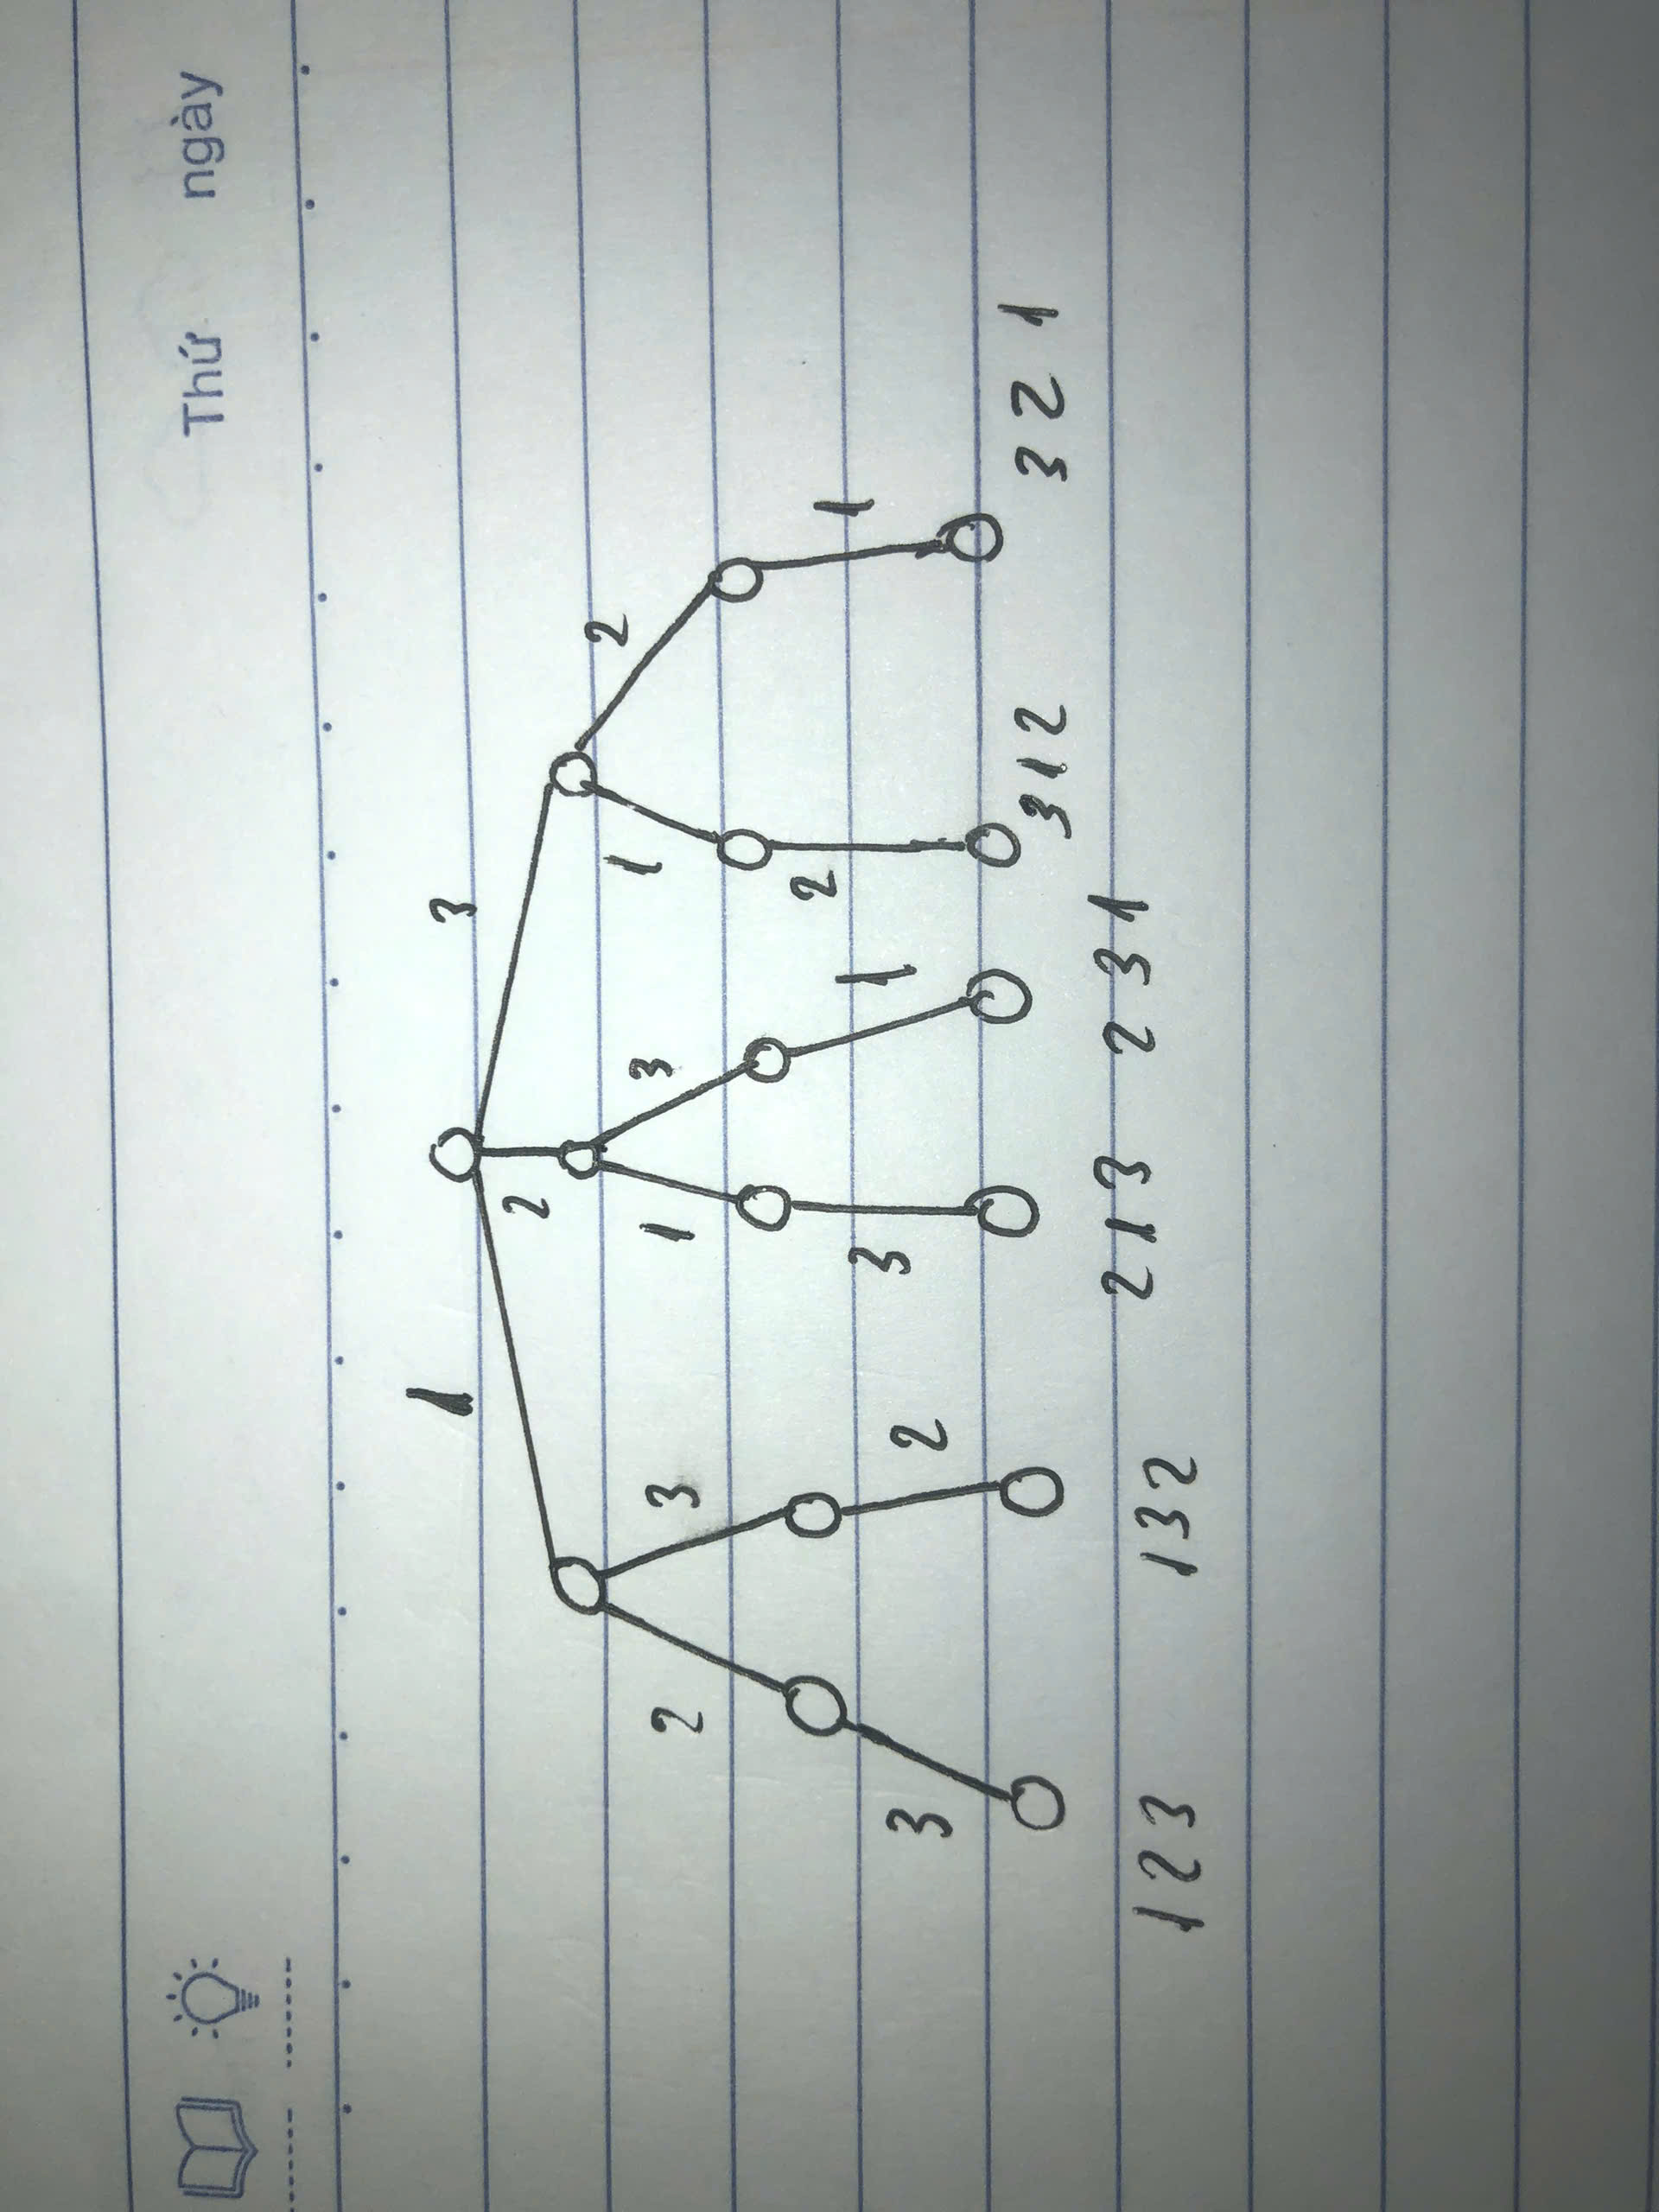 Thứ ngày
1 3
2
2 3 1 3 1 2
3 2 3 1 2 1
1 2 3 132 213 231 312 3 2 1